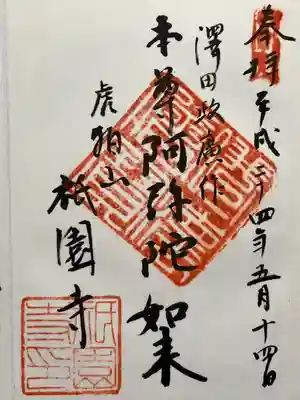 奉拝 平成二十四年五月十四日
澤田政廣作
本尊阿弥陀如来
虎狛山
祇園寺
祇園
寺印